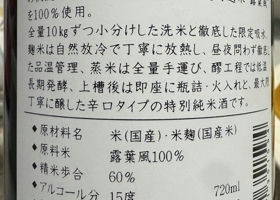 を100%使用。
全量10kgずつ小分けした洗米と徹底した限定吸水、
麹米は自然放冷で丁寧に放熱し、昼夜問わず徹底
した品温管理、蒸米は全量手運び、醪工程では低温
長期発酵、上槽後は即座に瓶詰・火入れと、最大限
丁寧に醸した辛口タイプの特別純米酒です。
◆原材料名 米(国産)・米麹(国産米)
◆原料米 露葉風100%
◆精米歩合 60%
◆アルコール分 15度
720ml